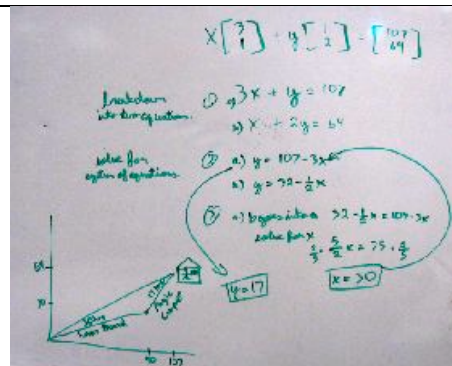 x [3 1] + y [1 2] = [107 64]
breakdown into two equations
① a) 3x + 1y = 107
b) x + 2y = 64
solve for system of equations
② a) y = 107 - 3x
b) y = 32 - ½x
③ a) b goes into a 32 - ½x = 107 - 3x
solve for x
5/2 x = 75
y = 17
x = 30
64
30
Hover Board
Magic Carpet
90 107